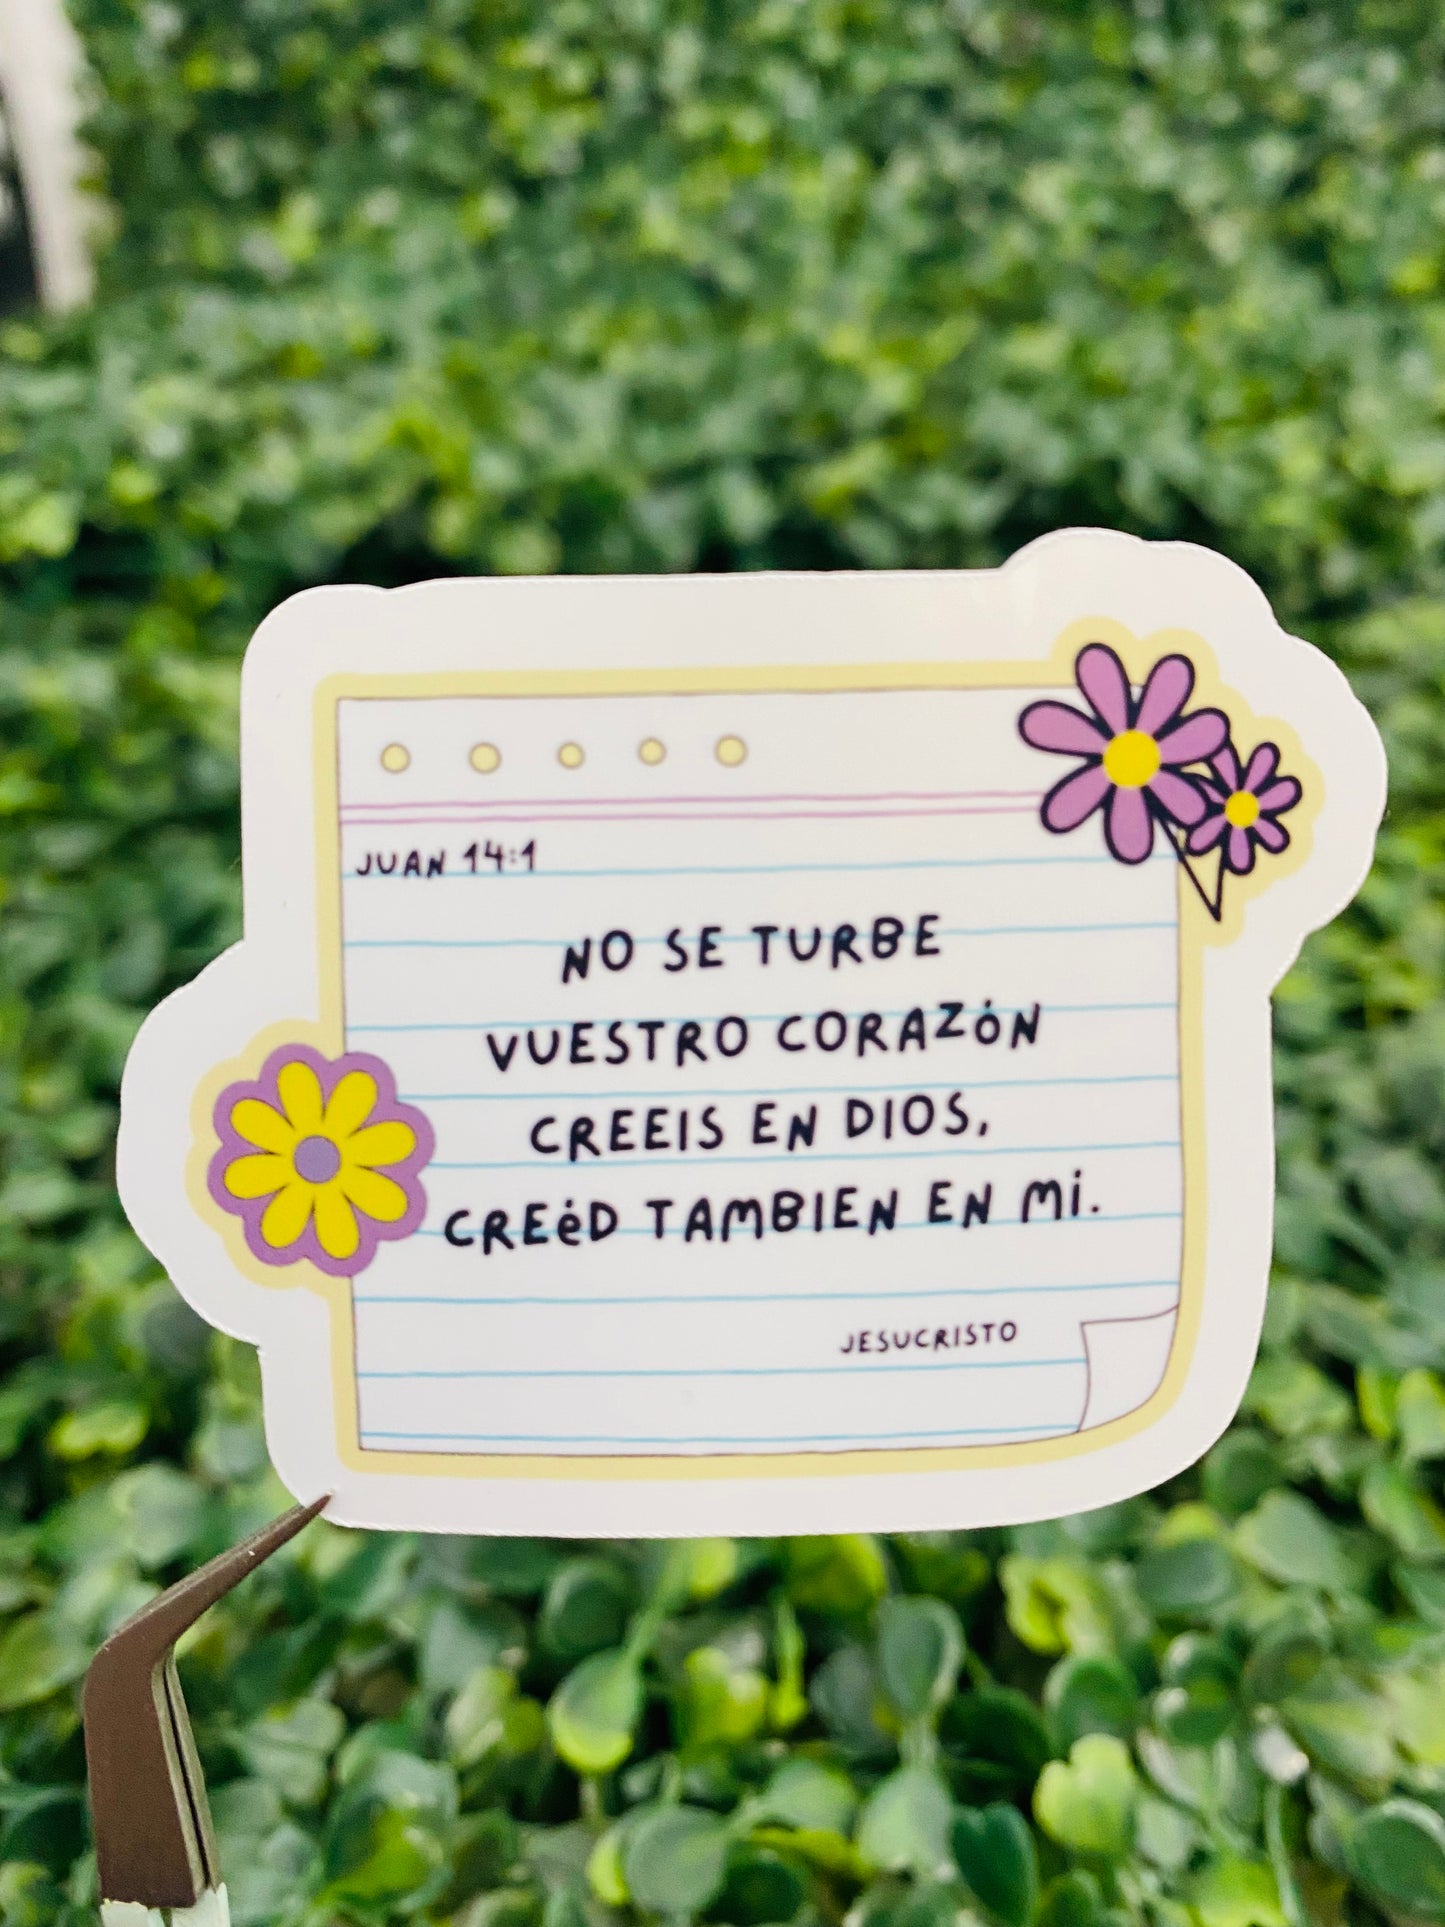 JUAN 14:1
NO SE TURBE
VUESTRO CORAZÓN
CREEIS EN DIOS,
CREÉD TAMBIEN EN MÍ.
JESUCRISTO